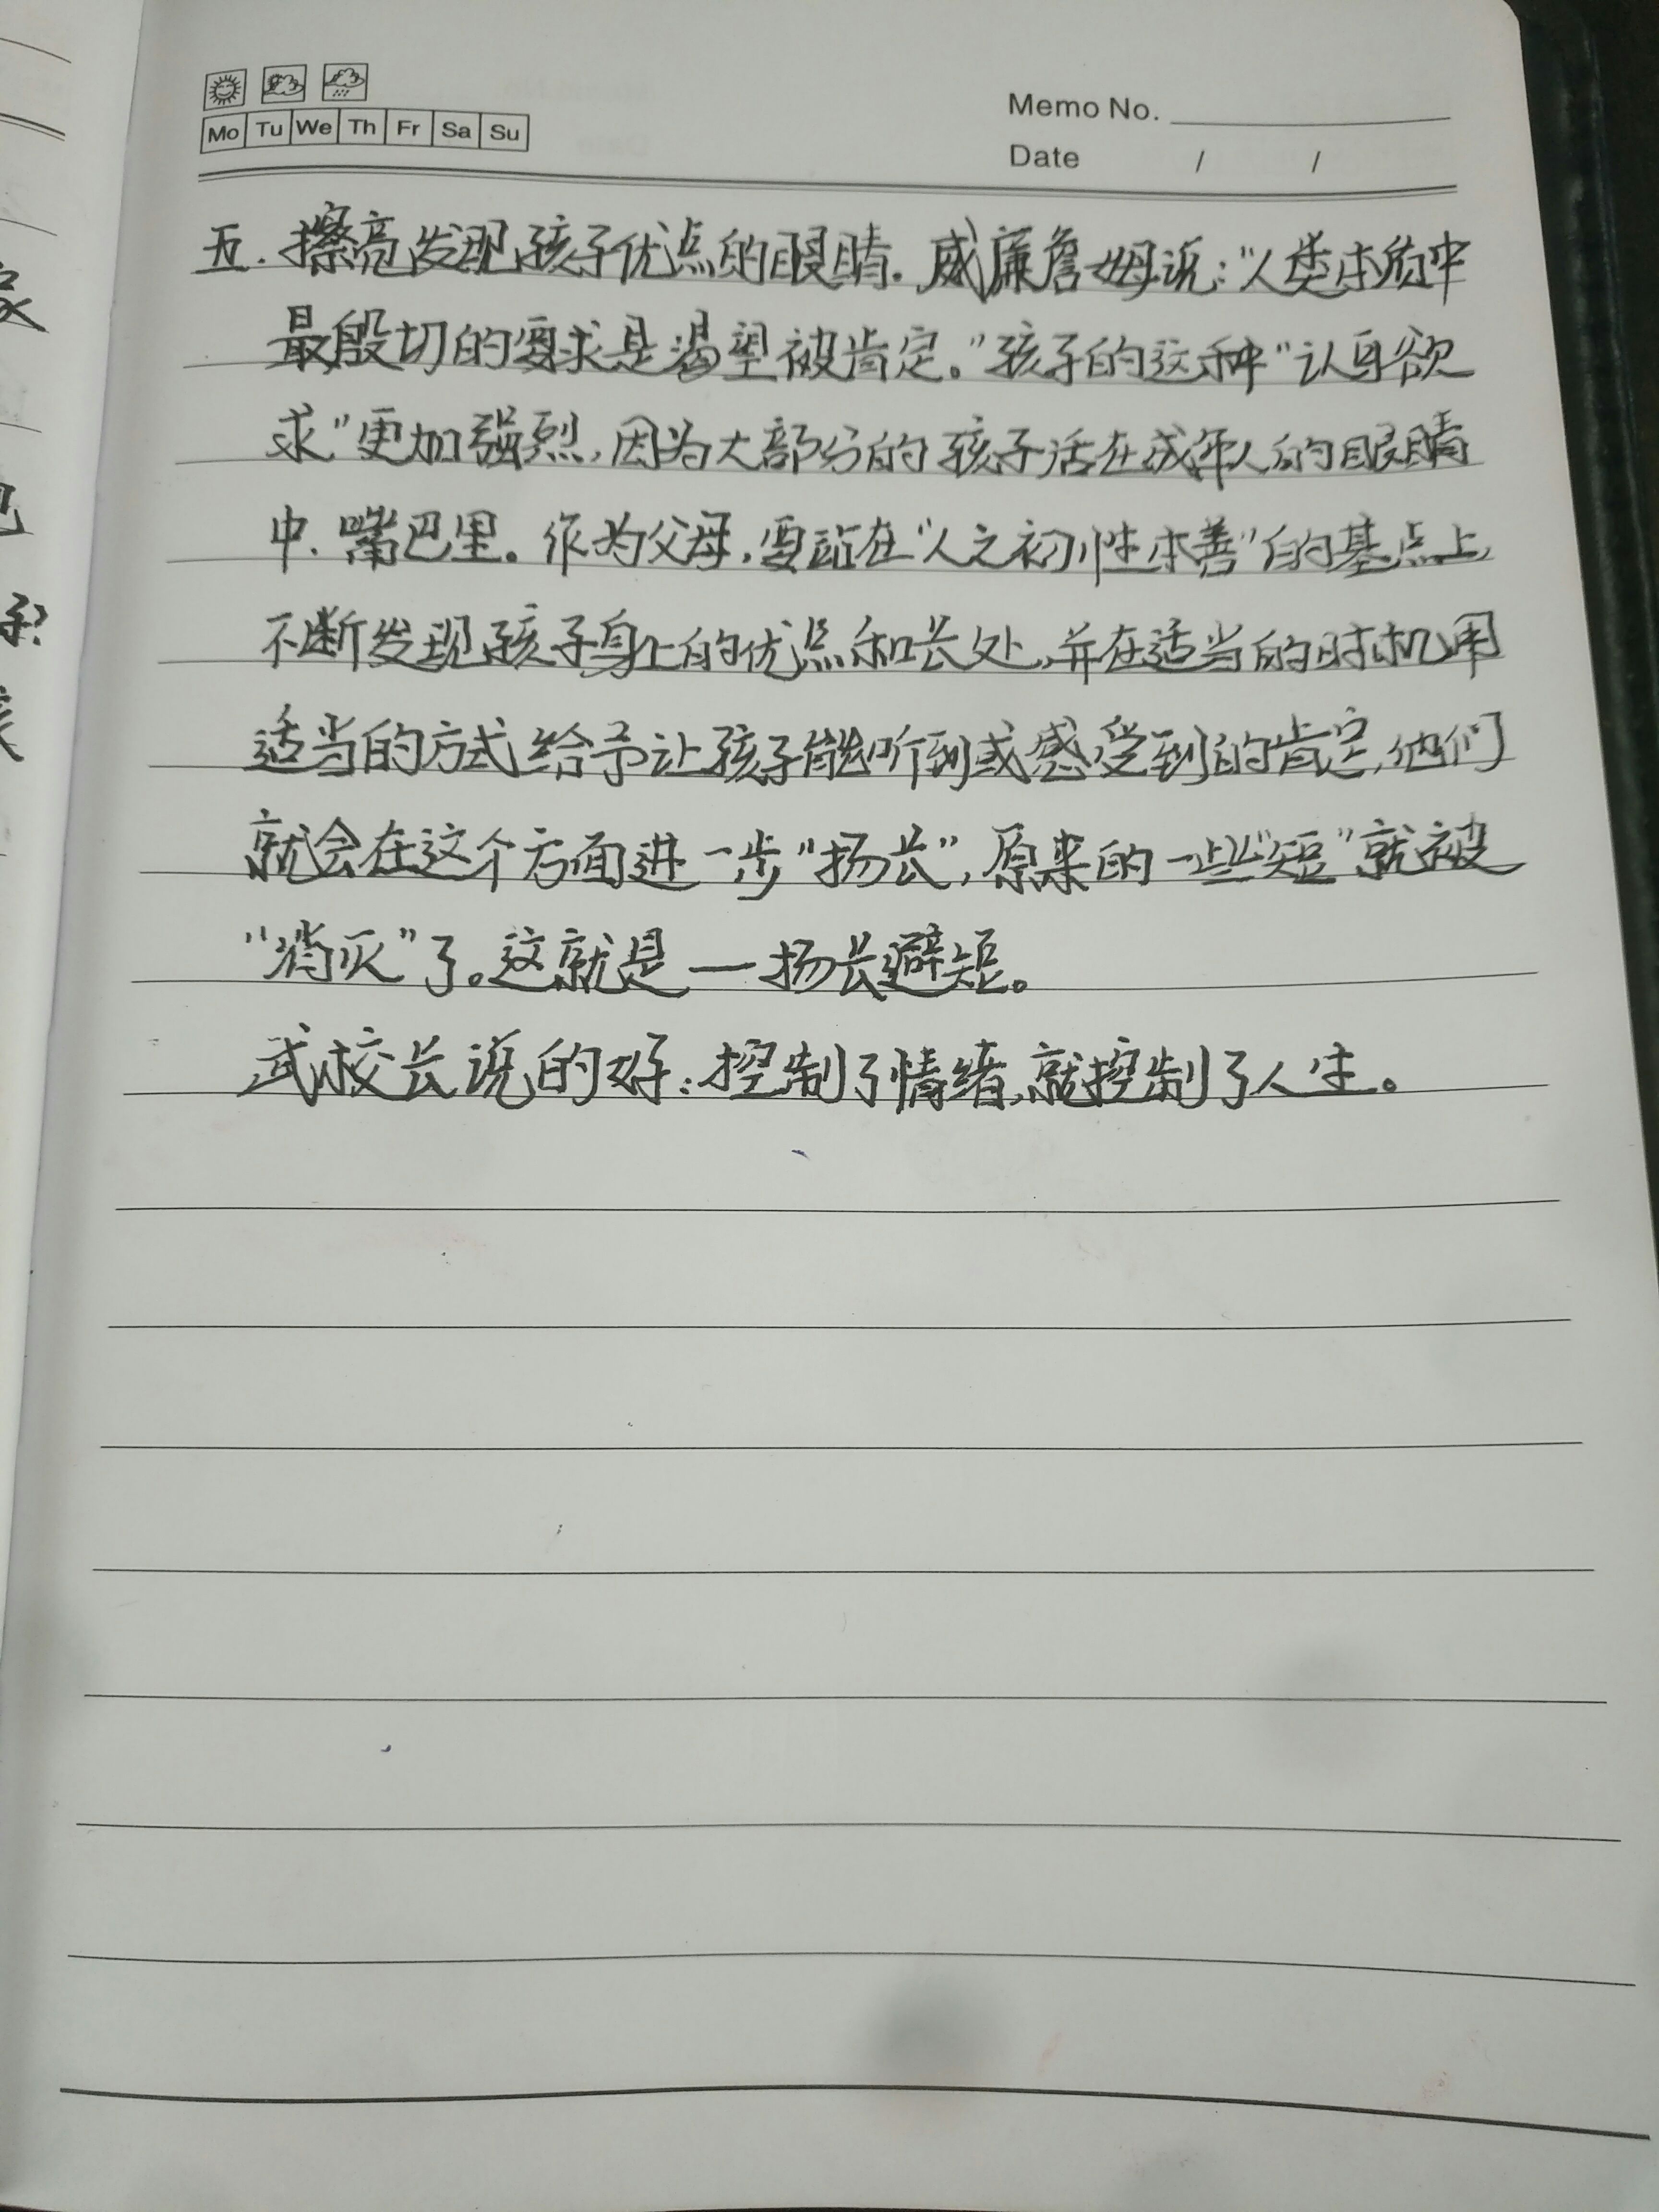 Mo Tu We Th Fr Sa Su
Memo No.
Date / /
五.擦亮发现孩子优点的眼睛.威廉詹姆说:“人类本质中
最殷切的要求是渴望被肯定。”孩子的这种“认身欲
求”更加强烈,因为大部分的孩子活在成年人的眼睛
中、嘴巴里。作为父母,要站在“人之初性本善”的基点上,
不断发现孩子身上的优点和长处,并在适当的时机用
适当的方式给予让孩子能听到或感受到的肯定,他们
就会在这个方面进一步“扬长”,原来的一些“短”就被
“消灭”了。这就是—扬长避短。
武校长说的好:控制了情绪,就控制了人生。